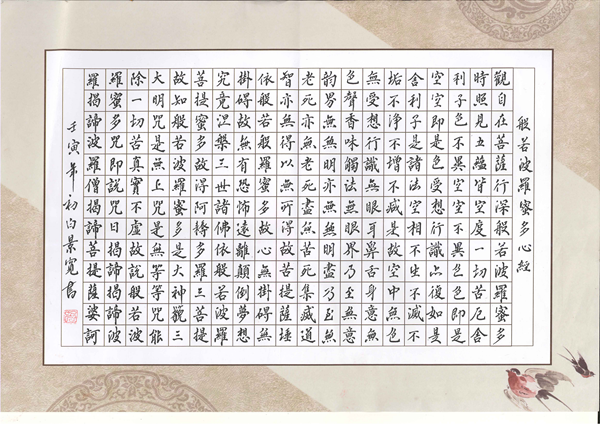 般若波羅蜜多心經
觀自在菩薩行深般若波羅蜜多
時照見五蘊皆空度一切苦厄舍
利子色不異空空不異色色即是
空空即是色受想行識亦復如是
舍利子是諸法空相不生不滅不
垢不淨不增不減是故空中無色
無受想行識無眼耳鼻舌身意無
色聲香味觸法無眼界乃至無意
識界無無明亦無無明盡乃至無
老死亦無老死盡無苦集滅道
智亦無得以無所得故菩提薩埵
依般若波羅蜜多故心無掛礙無
掛礙故無有恐怖遠離顛倒夢想
究竟涅槃三世諸佛依般若波羅
菩提蜜多故得阿耨多羅三菩提
故知般若波羅蜜多是大神藐三
大明咒是無上咒是無等等咒能
除一切苦真實不虛故說般若波
羅蜜多咒即說咒曰揭諦揭諦波
羅揭諦波羅僧揭諦菩提薩婆訶
壬寅年初白景寬書